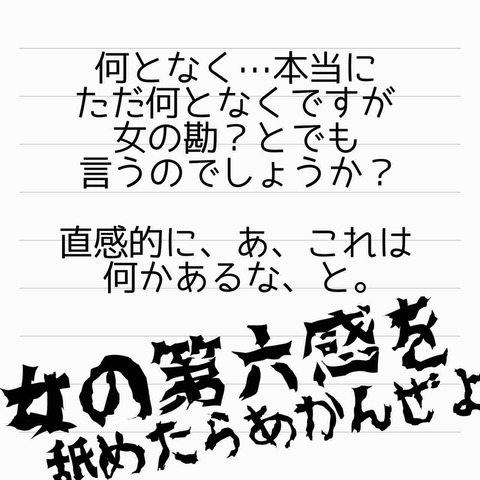 何となく…本当に
ただ何となくですが
女の勘？とでも
言うのでしょうか？
直感的に、あ、これは
何かあるな、と。
女の第六感を
舐めたらあかんぜよ